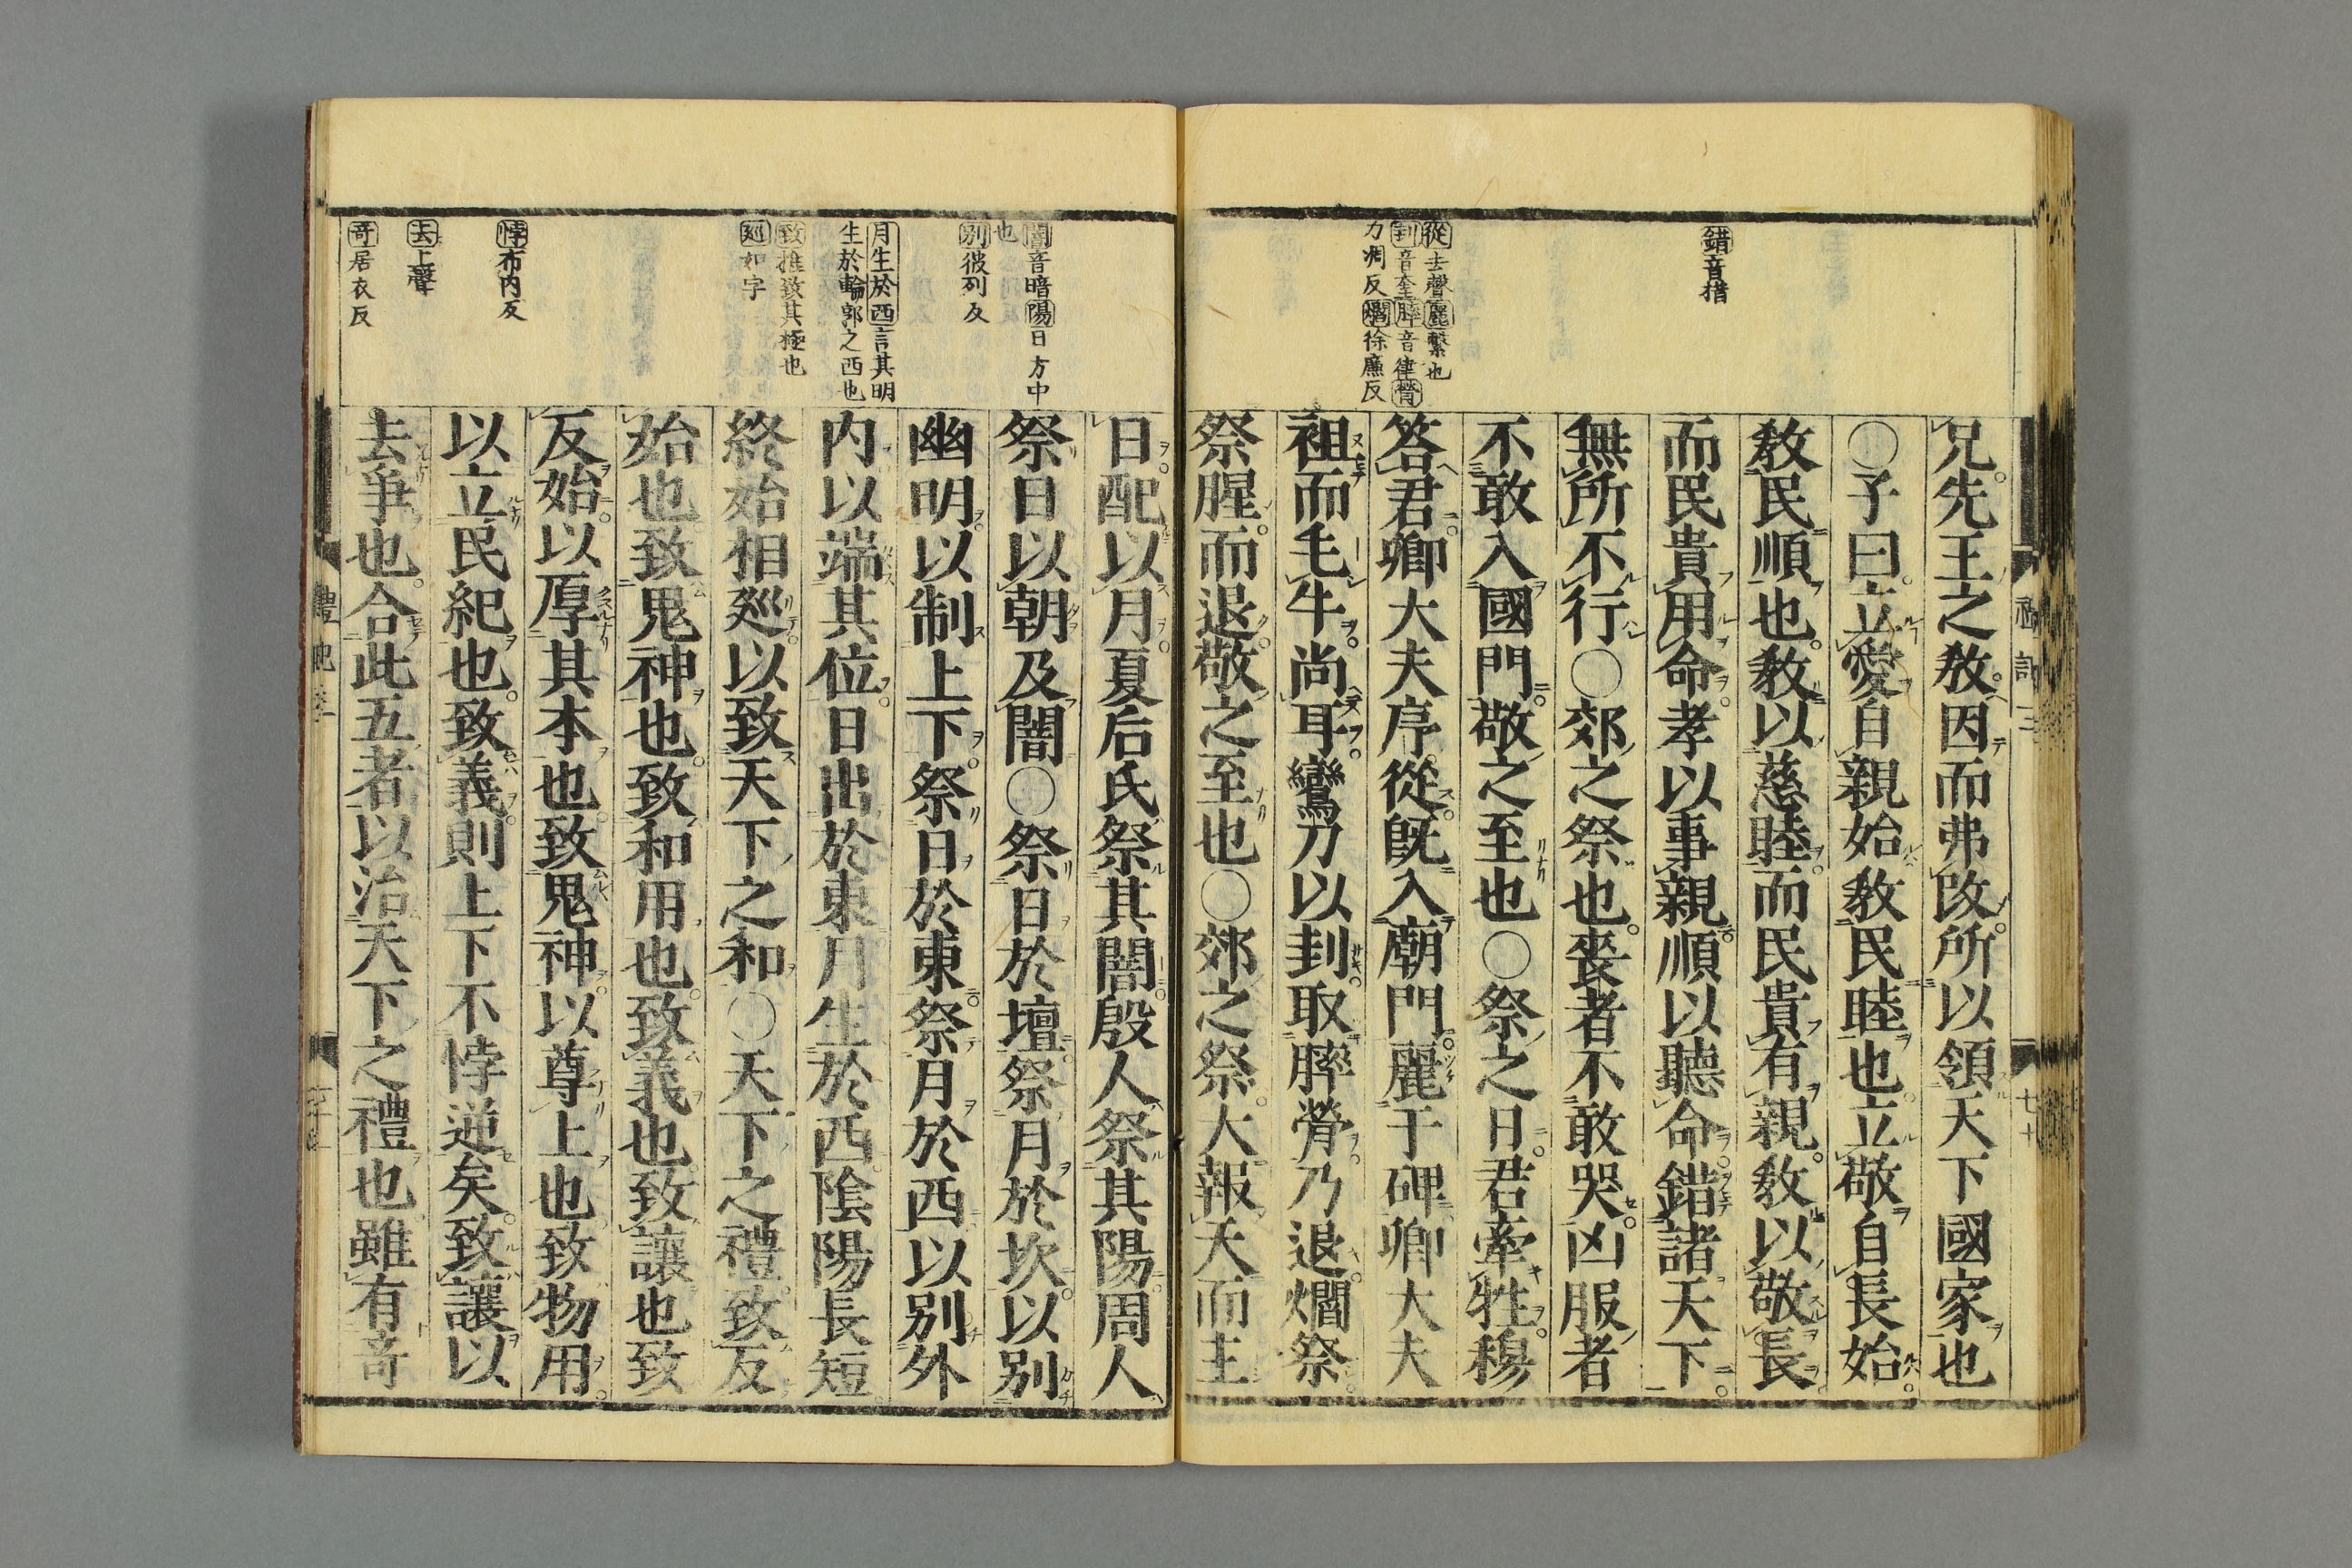 錯音措
從去聲麗繫也
刲音奎膟音律膋
力凋反爓徐廉反
兄先王之敎因而弗改所以領天下國家也
○子曰立愛自親始敎民睦也立敬自長始
敎民順也敎以慈睦而民貴有親敎以敬長
而民貴用命孝以事親順以聽命錯諸天下
無所不行○郊之祭也喪者不敢哭凶服者
不敢入國門敬之至也○祭之日君牽牲穆
答君卿大夫序從旣入廟門麗于碑卿大夫
袒而毛牛尚耳鸞刀以刲取膟膋乃退爓祭
祭腥而退敬之至也○郊之祭大報天而主
闇音暗陽日方中
也
別彼列反
月生於西言其明
生於輪郭之西也
致推致其極也
廵如字
悖布内反
去上聲
奇居衣反
日配以月夏后氏祭其闇殷人祭其陽周人
祭日以朝及闇○祭日於壇祭月於坎以别
幽明以制上下祭日於東祭月於西以别外
内以端其位日出於東月生於西陰陽長短
終始相廵以致天下之和○天下之禮致反
始也致鬼神也致和用也致義也致讓也致
反始以厚其本也致鬼神以尊上也致物用
以立民紀也致義則上下不悖逆矣致讓以
去爭也合此五者以治天下之禮也雖有奇